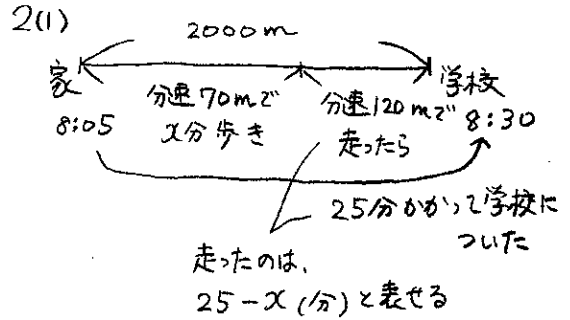 2(1)
2000m
家
学校
8:05
分速70mで
x分歩き
分速120mで
走ったら
8:30
25分かかって学校に
ついた
走ったのは、
25-x(分)と表せる